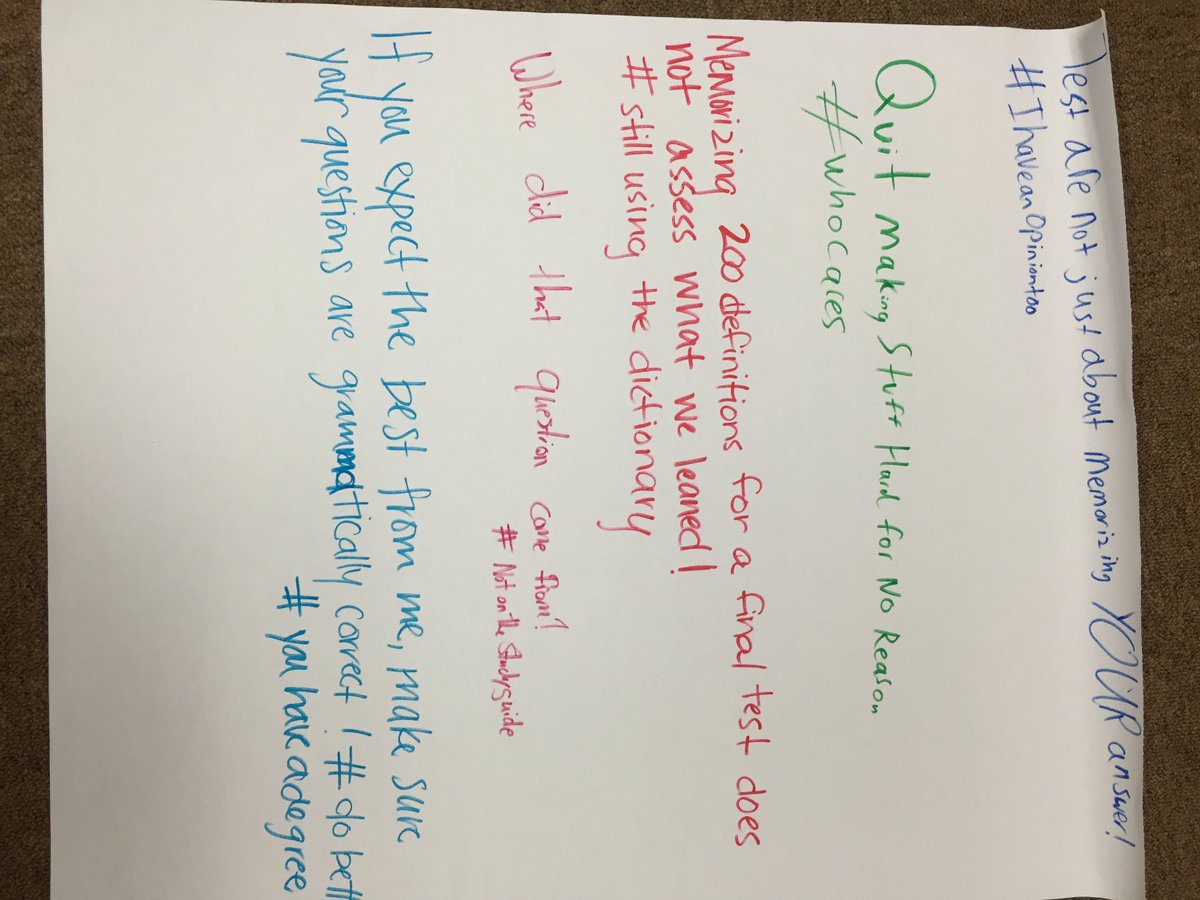 Test are not just about memorizing YOUR answer!
#IhaveanOpiniontoo
Quit making Stuff Hard for No Reason
#whocares
Memorizing 200 definitions for a final test does
not assess what we leaned!
# still using the dictionary
Where did that question come from?
# Not on the Studyguide
If you expect the best from me, make sure
your questions are grammatically correct! # do bett
# you have a degree